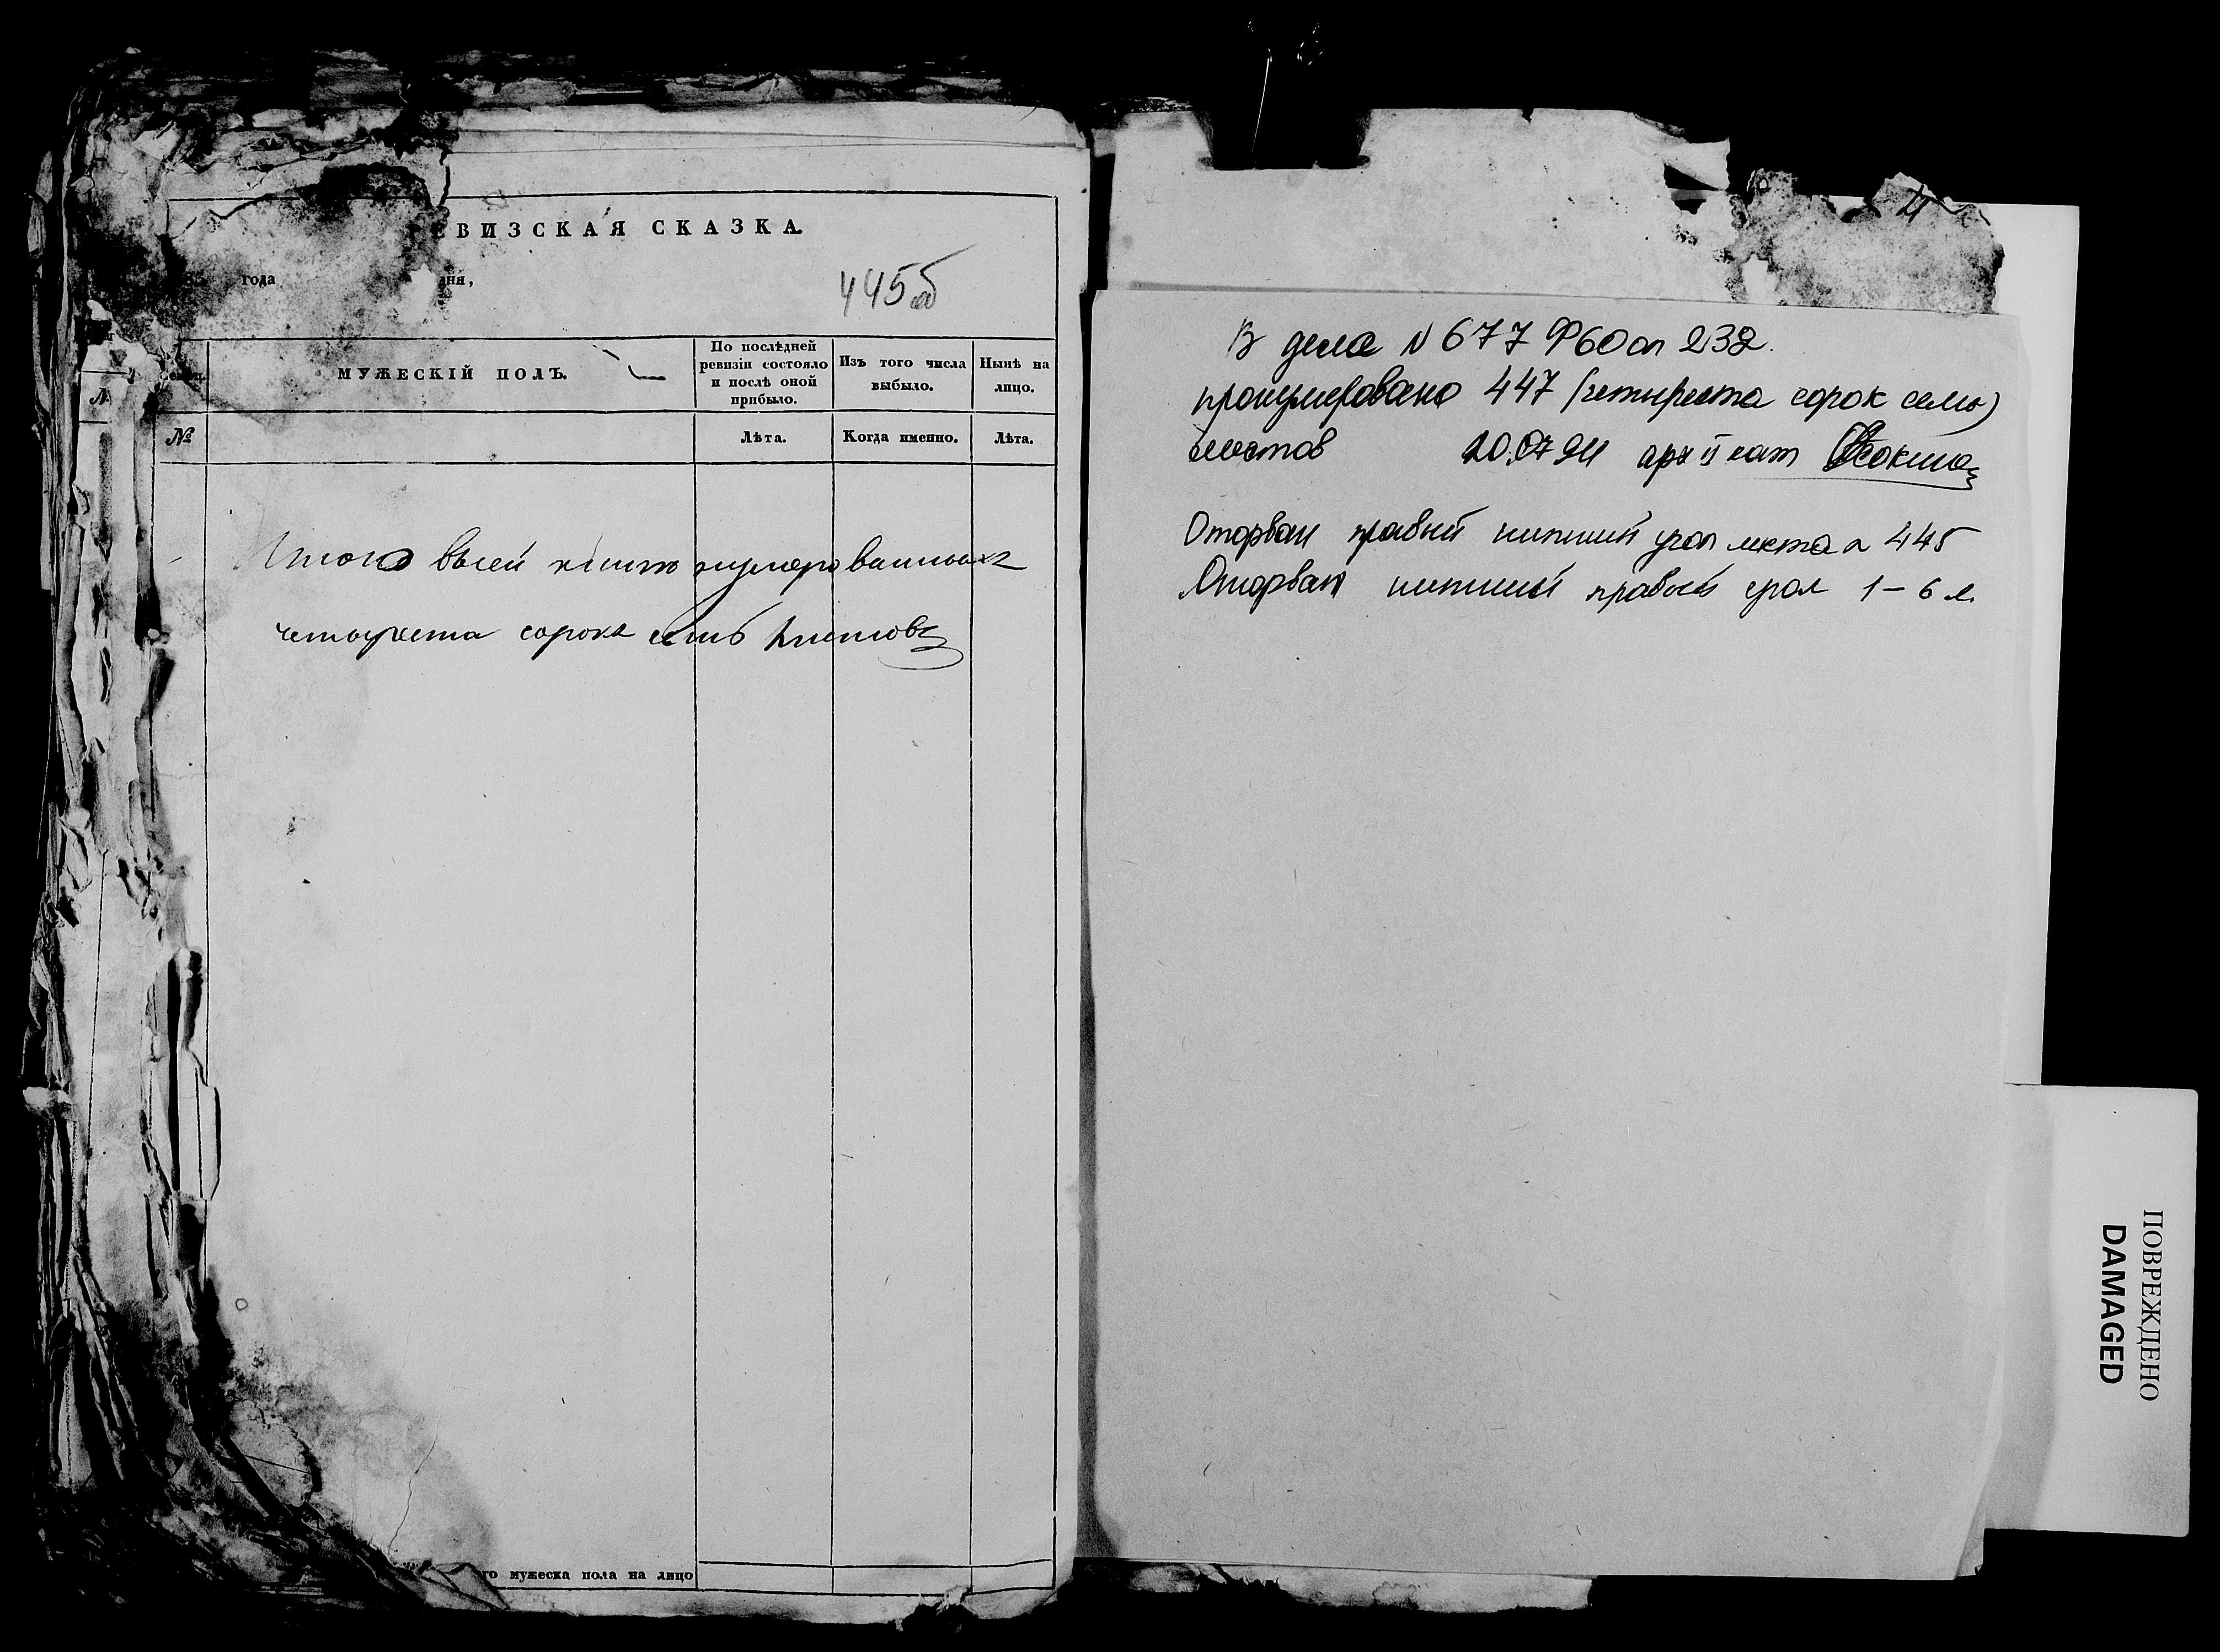 ЕВИЗСКАЯ СКАЗКА.
года дня,
445об
МУЖЕСКІЙ ПОЛЪ.
По послѣдней
ревизіи состояло
и послѣ оной
прибыло.
Изъ того числа
выбыло.
Нынѣ на
лицо.
№
Лѣта.
Когда именно.
Лѣта.
Итого всей книги нумерованныхъ
четыреста сорокъ семь листовъ
го мужеска пола на лицо
В деле N 677 Ф60 оп 232.
пронумеровано 447 (четыреста сорок семь)
листов 20.07.94 арх II кат
Оторван правый нижний угол листа 445
Оторван нижний правый угол 1-6 л.
ПОВРЕЖДЕНО
DAMAGED